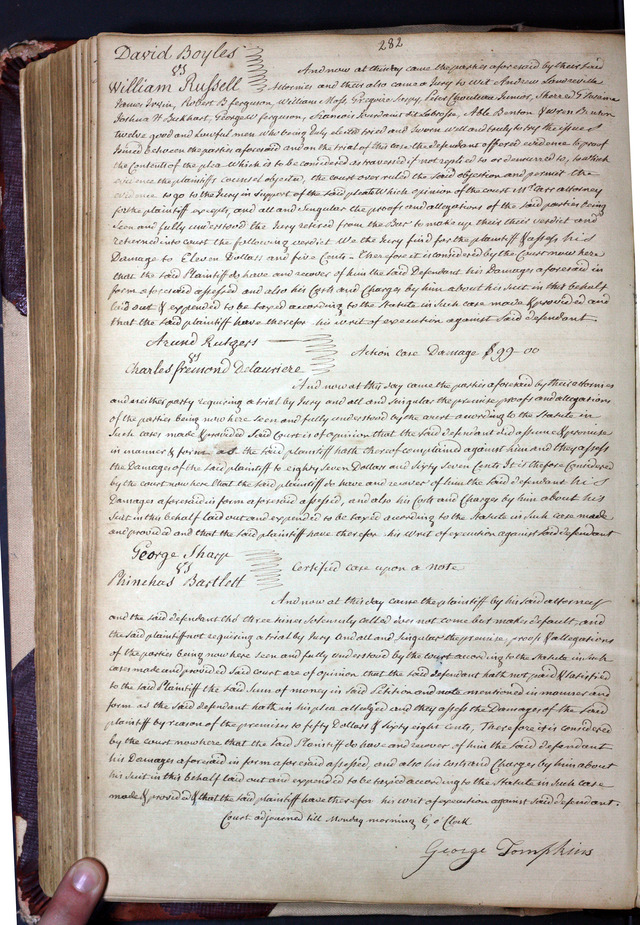 282
David Boyles
vs
William Russell
And now at this day came the parties aforesaid by their said
Attornies and there also came a Jury to wit Andrew Landreville
James Irwin, Robert B ferguson, William Moss, Gregoire Sarpy, Peter Chouteau Junior, Sherrod
Joshua H Burkhart, George W ferguson, francois Able Benton & Wren Benton
twelve good and lawful men who being duly elected tried and Sworn well and truly to try the issue
Joined between the parties aforesaid and on the trial of this case the defendant offered evidence to proof
the Contents of the plea which is to be considered as traversed if not replied to or demurred to, to which
evidence the plaintiffs counsel objected, the court over ruled the Said objection and permit the
evidence to go to the Jury in support of the said plea to Which opinion of the court Mr Carr attorney
for the plaintiff excepts, and all and Singular the proofs and allegations of the said parties being
Seen and fully understood the Jury retired from the Bar to make up their their verdict and
returned into court the following verdict We the Jury find for the plaintiff & assess his
Damage to Eleven Dollars and five Cents - Therefore it is considered by the Court now here
that the said Plaintiff do have and recover of him the Said Defendant his Damages aforesaid in
form aforesaid assessed and also his Costs and Charges by him about his Suit in this behalf
laid out & expended to be taxed according to the Statute in Such case made & provided and
that the said plaintiff have therefor his writ of execution against Said defendant.
Arend Rutgers
vs
Action case Damage $99-00
Charles fremond Delauriere
And now at this day came the parties aforesaid by their attornies
and neither party requiring a trial by Jury and all and Singular the premise proofs and allegations
of the parties being now here seen and fully understood by the court according to the Statute in
Such cases made & provided Said Court is of opinion that the Said defendant did assume & promise
in manner & form as the Said plaintiff hath thereof complained against him and they assess
the Damages of the Said plaintiff to eighty Seven Dollars and Sixty Seven Cents It is therefore Considered
by the court now here that the Said plaintiff do have and recover of him the Said defendant his
Damages aforesaid in form aforesaid assessed, and also his Costs and Charges by him about his
Suit in this behalf laid out and expended to be taxed according to the Statute in Such case made
and provided and that the Said plaintiff have therefor his writ of execution against Said defendant
George Sharp
vs
Certified case upon a note
Phinehas Bartlett
And now at this day came the plaintiff by his Said attorney
and the said defendant tho' three times Solemnly called does not come but makes default, and
the said plaintiff not requiring a trial by Jury And all and Singular the premise, proofs & allegations
of the parties being now here seen and fully understood by the court according to the Statute in Such
cases made and provided Said court are of opinion that the said defendant hath not paid & satisfied
to the Said Plaintiff the Said Sum of money in Said Petition and note mentioned in manner and
form as the Said defendant hath in his plea alledged and they assess the Damages of the Said
plaintiff by reason of the premises to fifty Dollars & Sixty eight cents, Therefore it is considered
by the court now here that the Said Plaintiff do have and recover of him the Said defendant
his Damages aforesaid in form aforesaid assessed, and also his costs and Charges by him about
his Suit in this behalf laid out and expended to be taxed according to the Statute in Such case
made & provided & that the Said plaintiff have therefor his writ of execution against Said defendant.
Court adjourned till Monday morning 6, o Clock
George Tompkins